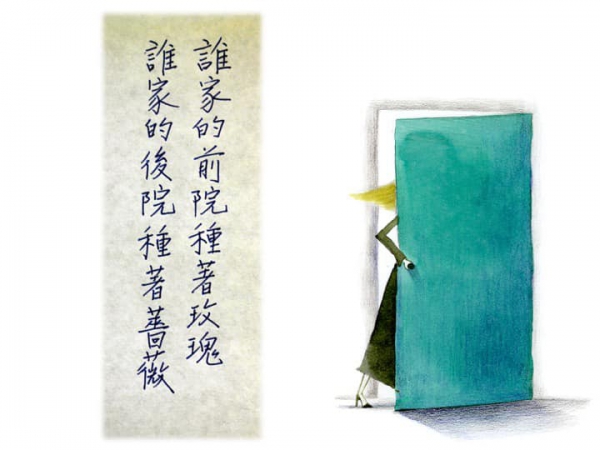 誰家的前院種著玫瑰
誰家的後院種著薔薇